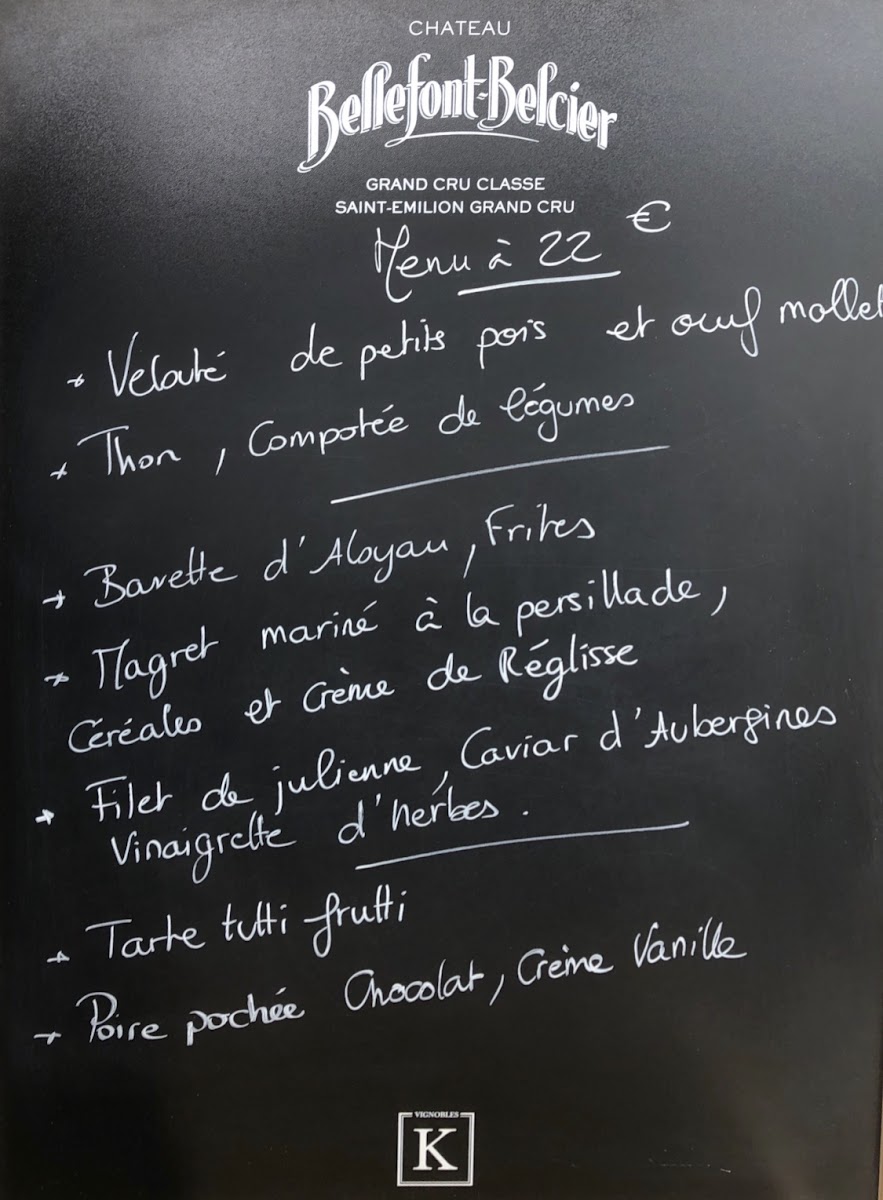 CHATEAU
Bellefont-Belcier
GRAND CRU CLASSE
SAINT-EMILION GRAND CRU
Menu à 22 €
Velouté de petits pois et œuf mollet
Thon, Compotée de légumes
Bavette d'Aloyau, Frites
Magret mariné à la persillade,
Céréales et Crème de Réglisse
Filet de julienne, Caviar d'Aubergines
Vinaigrette d'herbes.
Tarte tutti frutti
Poire pochée Chocolat, Crème Vanille
VIGNOBLES
K